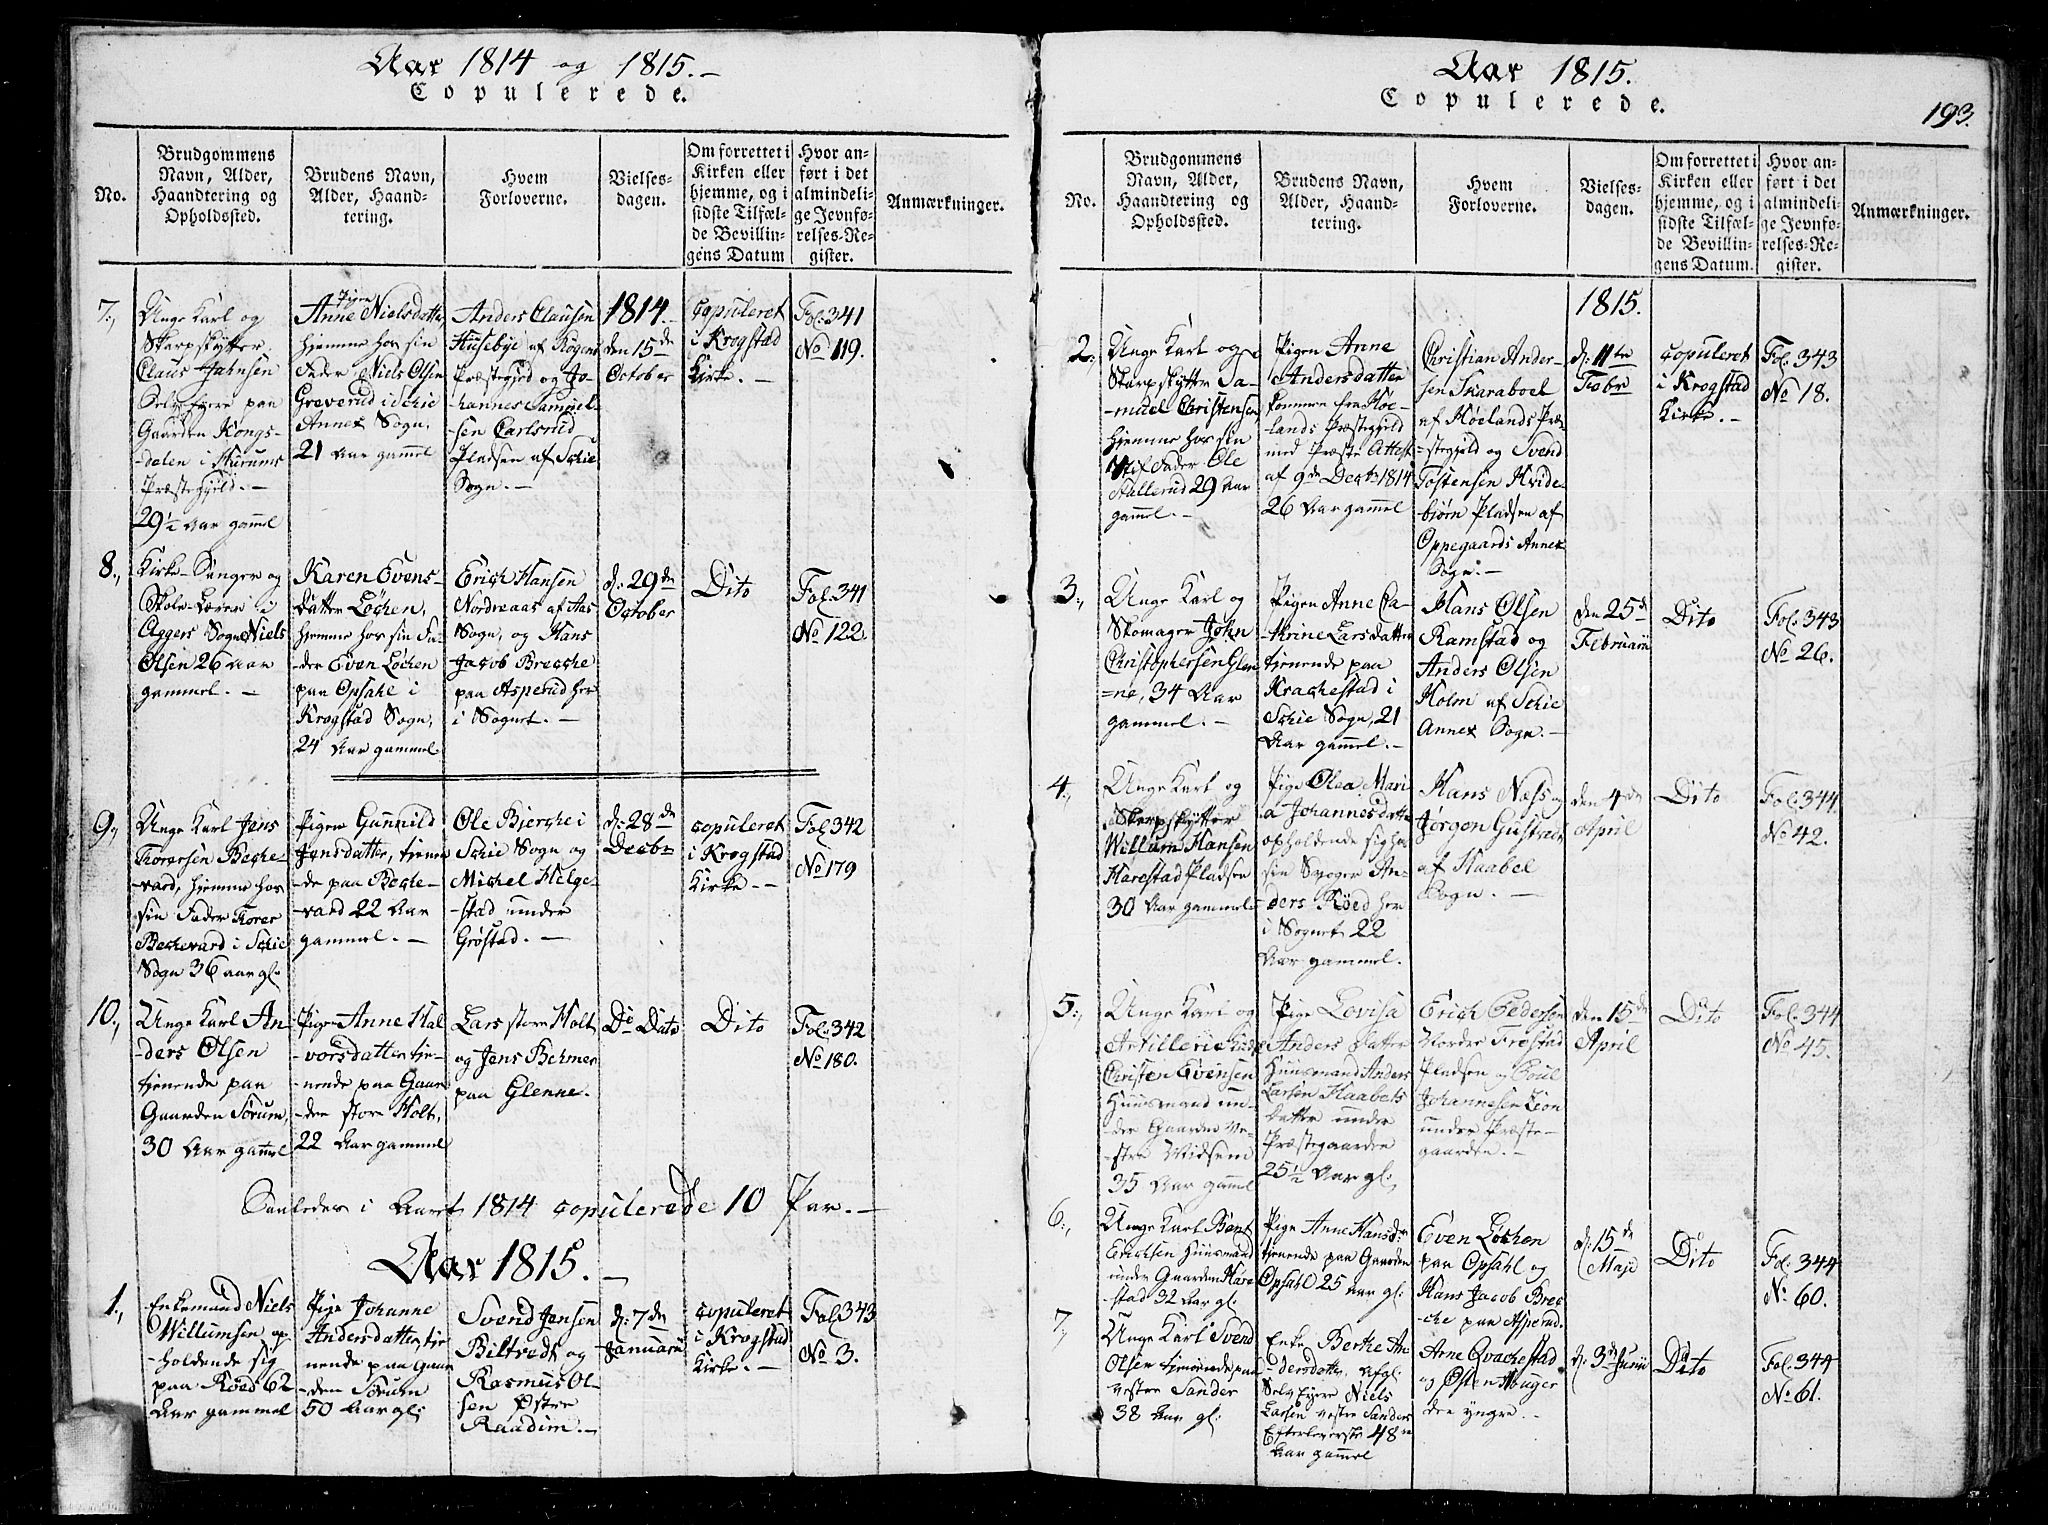 Aar 1814 og 1815. –
Copulerede.
No.
Brudgommens
Navn, Alder,
Haandtering og
Opholdssted.
Brudens Navn,
Alder, Haand-
tering.
Hvem
Forloverne.
Vielses-
dagen.
Om forrettet i
Kirken eller
hjemme, og i
sidste Tilfæl-
de Bevillin-
gens Datum
Hvor an-
ført i det
almindeli-
ge Jevnfø-
relses-Re-
gister.
Anmærkninger.
7.,
Unge Karl og
Skarpskytter
Claus Hansen
Selv Eyere paa
Gaarden Kongs-
-delen i Hurums
Præstegjeld. –
29½ Aar gammel
Pigen
Anne Nielsdatter,
hjemme hos sin
Fader Niels Olsen
Greverud i Schie
Annex Sogn,
21 Aar gammel
Anders Clausen
Husebye af Røgens
Præstegjeld og Jo-
hannes Samuel-
sen Carlsrud
Pladsen af Schie
Sogn. –
1814.
den 15de
October
copuleret
i Krogstad
Kirke. –
Fol: 341
No 119.
8.,
Kirke-Sanger og
Skole-Lærer i
Aggers Sogn Niels
Olsen 26 Aar
gammel. –
Karen Evens-
datter Løchen,
hjemme hos sin Fa-
der Even Løchen
paa Opsahl i
Krogstad Sogn,
24 Aar gammel
Erich Hansen
Nordreaas af Aas
Sogn, og Hans
Jacob Brecche
paa Asperud her
i Sognet. –
d: 29de
October
Dito
Fol: 341
No 122.
9.,
Unge Karl Jens
Torersen Beche-
-vard, hjemme hos
sin Fader Torer
Bechevard i Schie
Sogn 36 aar gl:
Pigen Gunnild
Jensdatter, tiene-
-de paa Beche-
-vard 22 Aar
gammel. –
Ole Bjerche i
Schie Sogn og
Michel Helge-
-stad under
Grøstad. –
d: 28de
Decbr
copuleret
i Krogstad
Kirke –
Fol: 342
No 179
10.,
Unge Karl An-
-ders Olsen
tjenende paa
Gaarden Sørum,
30 Aar gammel
Pige Anne Hal-
vorsdatter tje-
-nende paa Gaar-
-den store Holt,
22 Aar gammel
Lars store Holt
og Jens Behmer
paa Glenne.
Do Dato
Dito
Fol: 342
No 180.
Saaledes i Aaret 1814 copulerede 10 Par. –
Aar 1815. –
1.,
Enkemand Niels
Willumsen op-
-holdende sig
paa Røed 62
Aar gammel
Pige Johanne
Andersdatter, tje-
nende paa Gaar-
-den Sørum
50 Aar gl:
Svend Jensen
Biltredt og
Rasmus Ol-
sen Østre
Raadim. –
d: 7de
Januarii
copuleret
i Krogstad
Kirke. –
Fol: 343
No 3.
Aar 1815.
Copulerede.
193.
No.
Brudgommens
Navn, Alder,
Haandtering og
Opholdssted.
Brudens Navn,
Alder, Haand-
tering.
Hvem
Forloverne.
Vielses-
dagen.
Om forrettet i
Kirken eller
hjemme, og i
sidste Tilfæl-
de Bevillin-
gens Datum.
Hvor an-
ført i det
almindeli-
ge Jevnfø-
relses-Re-
gister.
Anmærkninger.
1815.
2.,
Unge Karl og
Skarpskytter Sa-
-muel Christensen,
hjemme hos sin
Stif Fader Ole
Stallerud 29 Aar
gammel. –
Pigen Anne
Andersdatter
kommen fra Høe-
lands Præstegjeld
med Præste Attest
af 9de Decbr 1814
26 Aar gammel
Christian Ander-
sen Skaraboel
af Høelands Præ-
-stegjeld og Svend
Tostensen Hvide-
bjørn Pladsen af
Oppegaards Annex
Sogn. –
d: 11te
Febr
copuleret
i Krogstad
Kirke. –
Fol: 343
No 18.
3.,
Unge Karl og
Skomager John
Christophersen Glen-
=ne, 34 Aar
gammel. –
Pigen Anne Ca-
thrine Larsdatter
tjenende paa
Krachestad i
Schie Sogn, 21
Aar gammel. –
Hans Olsen
Ramstad og
Anders Olsen
Holm af Schie
Annex Sogn. –
den 25de
Februarii
Dito
Fol: 343
No 26.
4.,
Unge Karl og
Skarpskytter
Willum Hansen
Harestad Pladsen
30 Aar gammel.
Pige Olea Mari-
a Johannesdatter
opholdende sig hos
sin Svoger An-
ders Røed her
i Sognet 22
Aar gammel.
Hans Næss og
Jørgen Gustredt
af Haabel
Sogn. –
den 4de
April
Dito
Fol: 344
No 42.
5.,
Unge Karl og
Artillerie
Christen Evensen
Huusmand un-
-der Gaarden Ve-
-stre Widsem
35 Aar gammel
Pige Lovisa
Anders Datter
Huusmand Anders
Larsen Haabets
Datter under
Præstegaarden
25½ Aar gl:
Erich Pedersen
Nordre Frøstad
Pladsen og Poul
Johannesen Leon
under Præste-
gaarden. –
den 15de
April
Dito
Fol: 344
No 45.
6.,
Unge Karl Bent
Erichsen Huusmand
under Gaarden Hare-
stad 32 Aar gl:
Pige Anne Hansdr
tjenende paa Gaarden
Opsahl 25 aar gl:
Even Løchen
paa Opsahl og
Hans Jacob Brec-
-che paa Asperud.
d: 15de
Maji
Dito
Fol: 344
No 60.
7.,
Unge Karl Svend
Olsen tjenende paa
vestre Sander
38 Aar gl:
Enke Berthe An-
-dersdatter, afgl:
Selv Eyere Niels
Larsen vestre Sanders
Efterleverske 48
Aar gammel
Arne Qvachestad
og Østen Huger
den yngre. –
d: 3de Junii
Dito
Fol: 344
No 61.